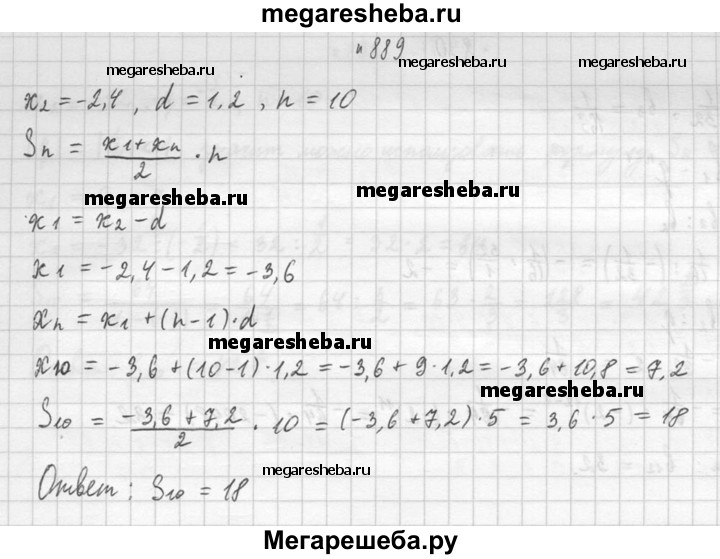 megaresheba.ru
n 889
megaresheba.ru megaresheba.ru
x₂ = -2,4 , d = 1,2 , n = 10
Sₙ = (x₁ + xₙ)/2 · n
megaresheba.ru megaresheba.ru
x₁ = x₂ - d
x₁ = -2,4 - 1,2 = -3,6
xₙ = x₁ + (n-1)·d
megaresheba.ru
x₁₀ = -3,6 + (10-1)·1,2 = -3,6 + 9·1,2 = -3,6 + 10,8 = 7,2
megaresheba.ru
S₁₀ = (-3,6 + 7,2)/2 · 10 = (-3,6 + 7,2)·5 = 3,6·5 = 18
megaresheba.ru
Ответ: S₁₀ = 18
Мегарешеба.ру